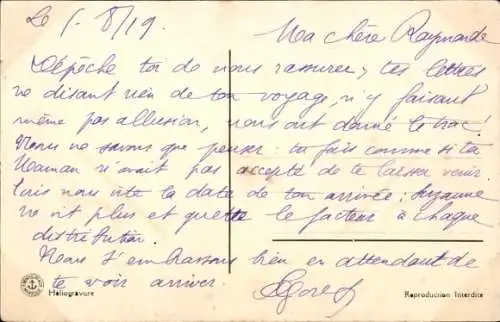 Le 5. 8/19.
Ma chère Raymonde
Dépêche toi de nous rassurer, tes lettres
ne disant rien de ton voyage, n'y faisant
même pas allusion, nous ont donné le trac!
Nous ne savons que penser: tu fais comme si ta
Maman n'avait pas accepté de te laisser venir.
Ecris nous vite la date de ton arrivée; Suzanne
ne vit plus et guette le facteur à chaque
distribution.
Nous t'embrassons bien en attendant de
te voir arriver.
Héliogravure
Reproduction Interdite